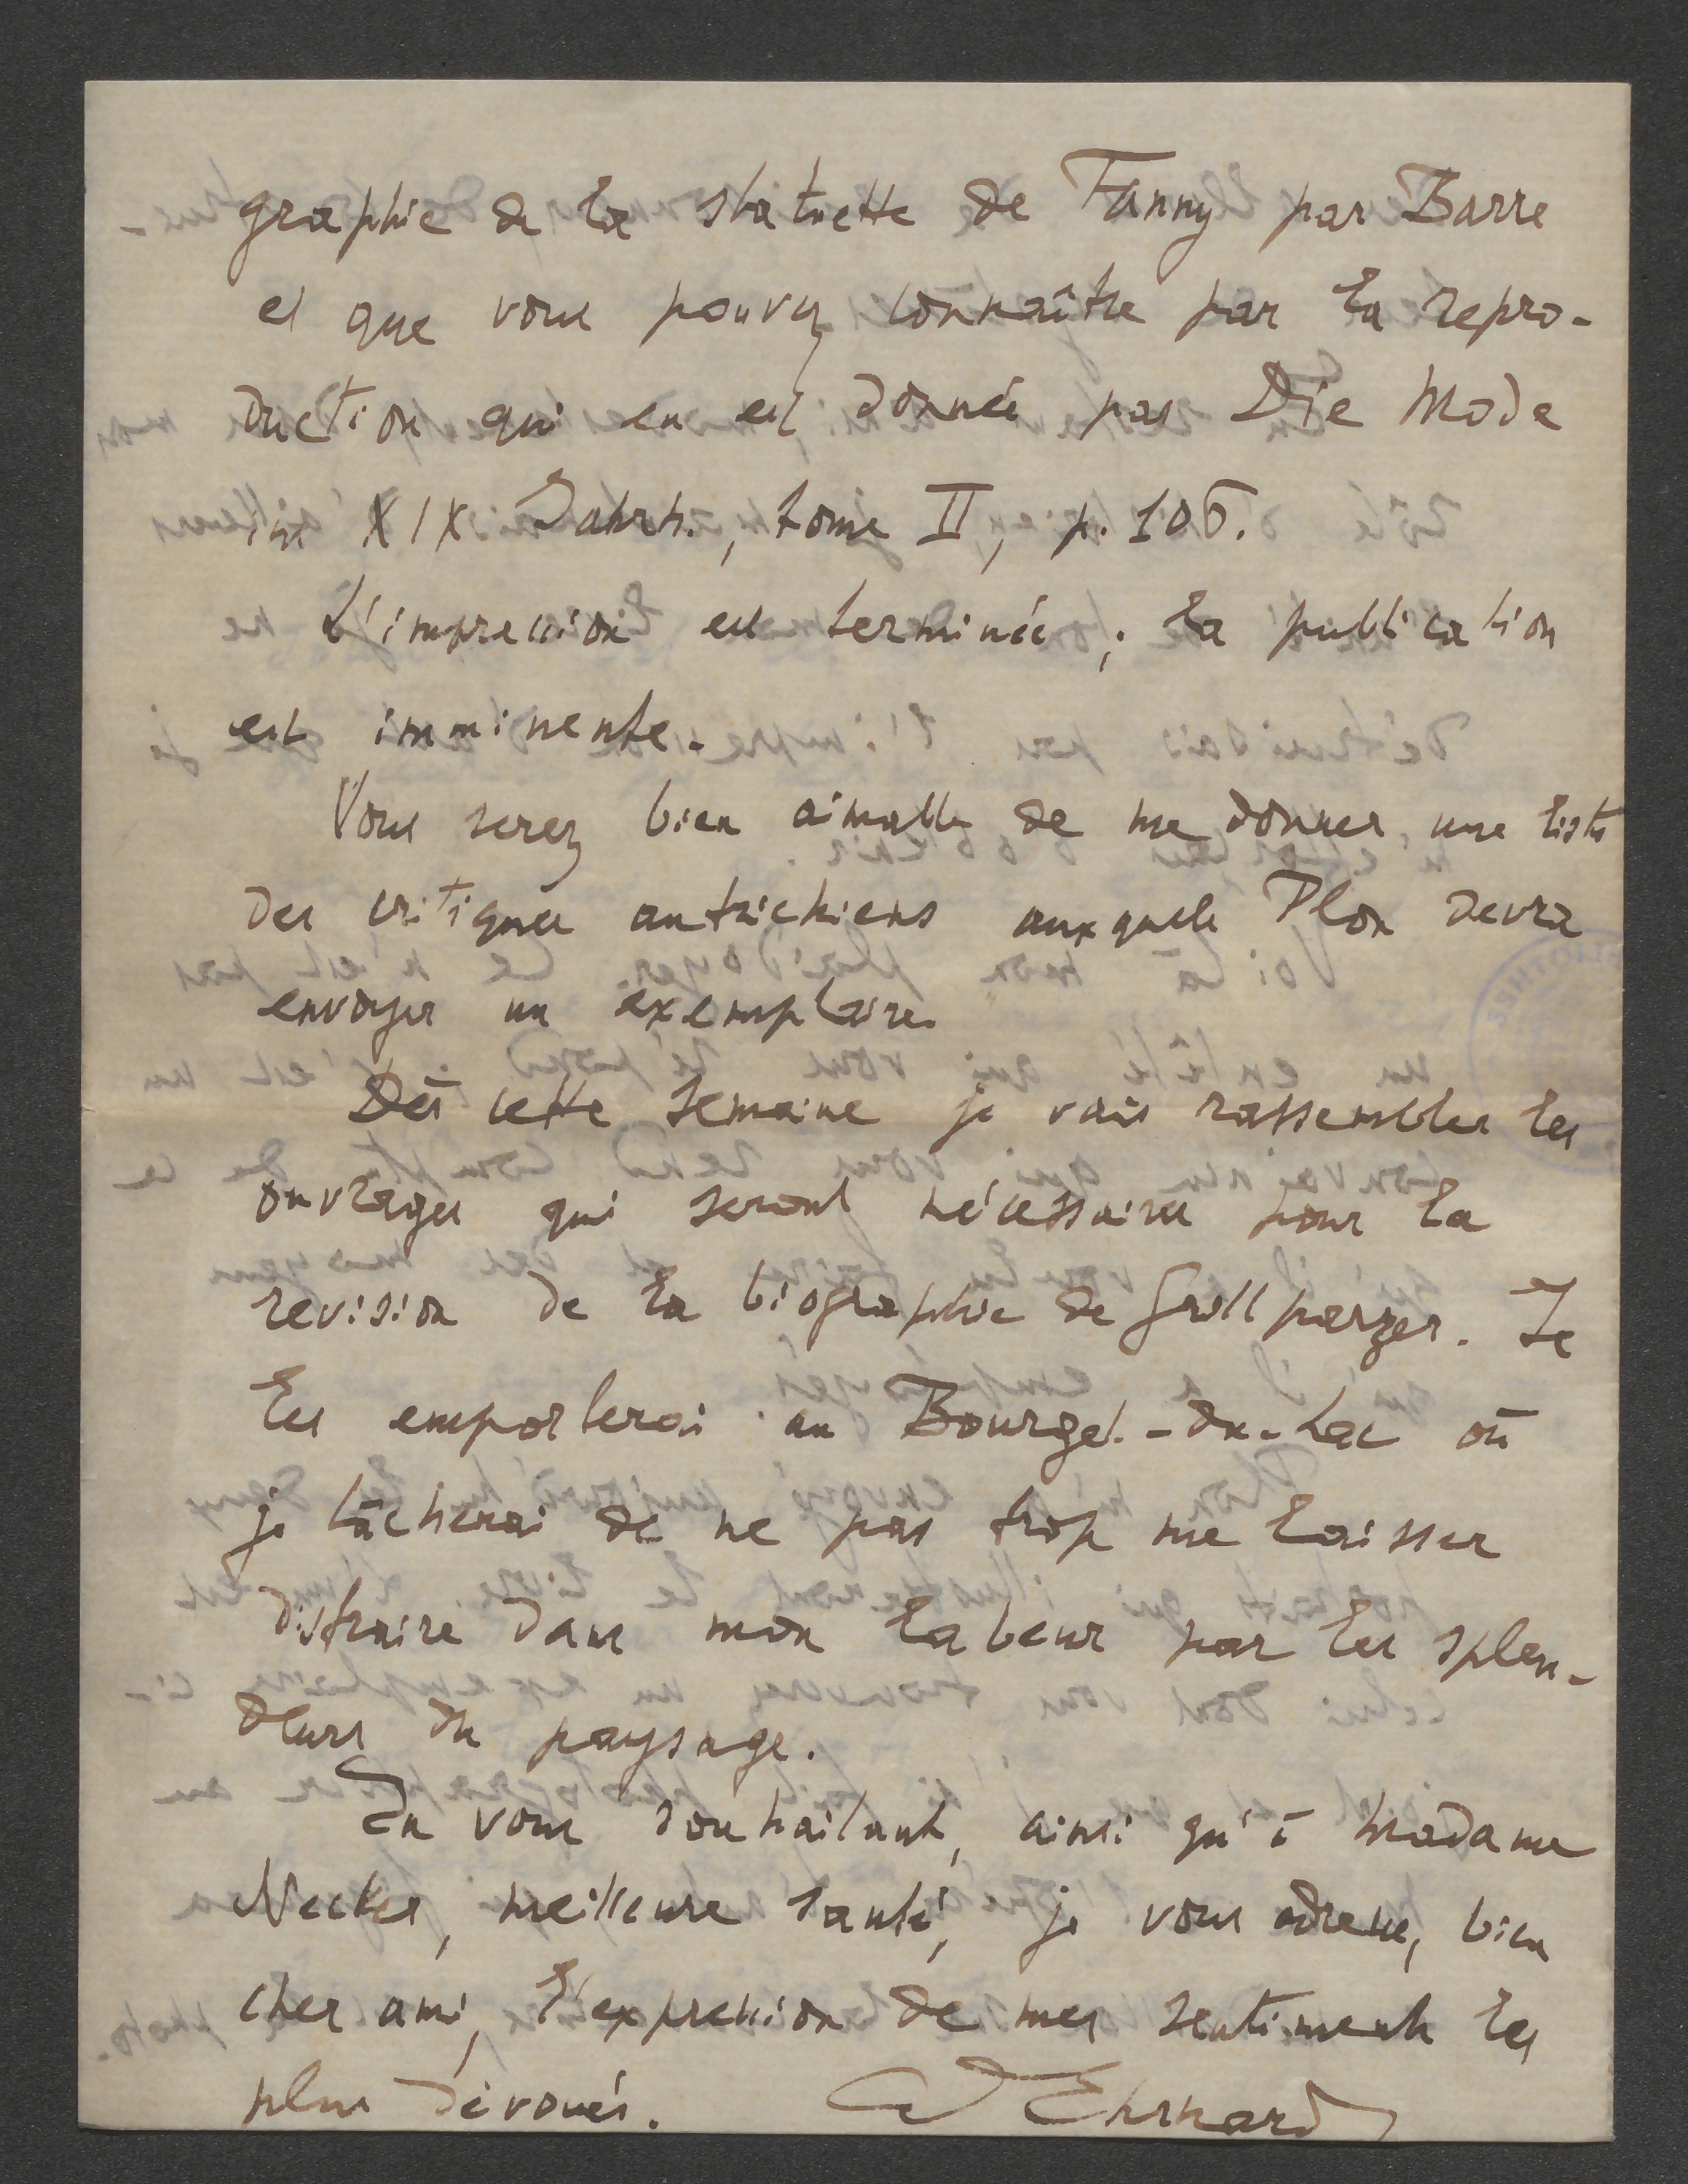 graphie de la statuette de Fanny par Barre
et que vous pouvez connaître par la repro-
duction qui en est donnée par Die Mode
im XIX Jahrh., tome II, p. 106.
L'impression est terminée ; la publication
est imminente.
Vous serez bien aimable de me donner une liste
des critiques autrichiens auxquels Plon devra
envoyer un exemplaire.
Dès cette semaine je vais rassembler les
ouvrages qui seront nécessaires pour la
revision de la biographie de Grillparzer. Je
les emporterai au Bourget-du-Lac où
je tâcherai de ne pas trop me laisser
distraire dans mon labeur par les splen-
deurs du paysage.
En vous souhaitant, ainsi qu'à Madame
Necker, meilleure santé, je vous adresse, bien
cher ami, l'expression de mes sentiments les
plus dévoués. A Ehrhard